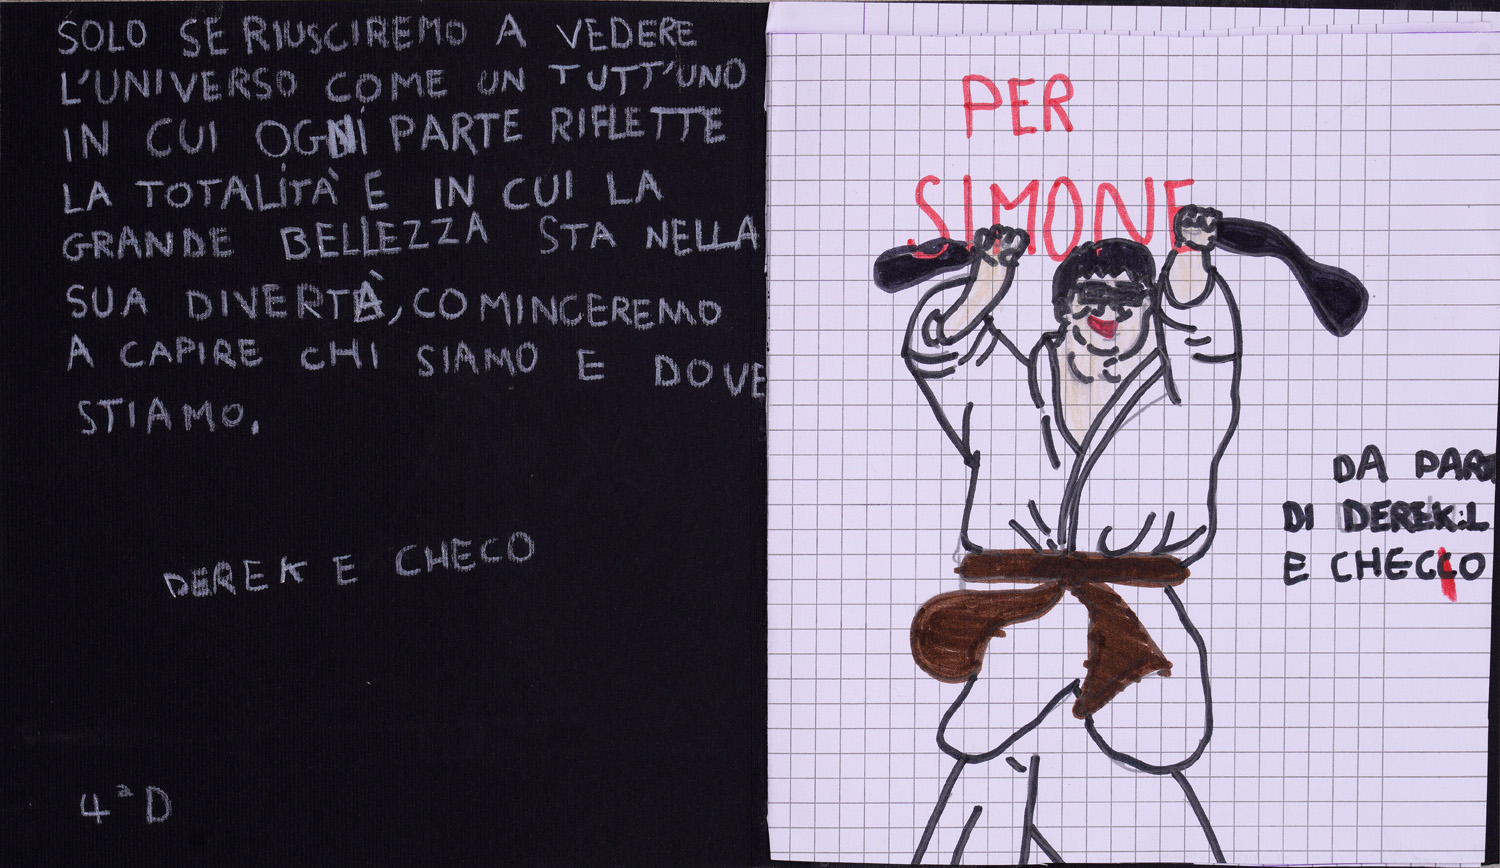 SOLO SE RIUSCIREMO A VEDERE
L'UNIVERSO COME UN TUTT'UNO
IN CUI OGNI PARTE RIFLETTE
LA TOTALITÀ E IN CUI LA
GRANDE BELLEZZA STA NELLA
SUA DIVERTÀ, COMINCEREMO
A CAPIRE CHI SIAMO E DOVE
STIAMO.
DEREK E CHECO
4ªD
PER
SIMONE
DA PART
DI DEREK.L
E CHECCO